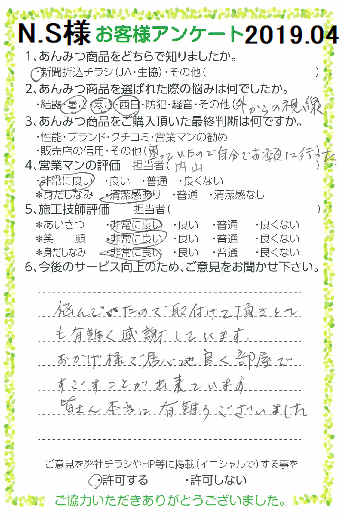 N.S様 お客様アンケート2019.04
1、あんみつ商品をどちらで知りましたか。
・新聞折込チラシ(JA・生協)・その他( )
2、あんみつ商品を選ばれた際の悩みは何でしたか。
・結露・暑さ・寒さ・西日・防犯・騒音・その他(外からの視線)
3、あんみつ商品をご購入頂いた最終判断は何ですか。
・性能・ブランド・クチコミ・営業マンの勧め
・販売店の信用・その他(困っていたので自分でお店に行った)
4、営業マンの評価 担当者(内山 )
・非常に良い ・良い ・普通 ・良くない
*身だしなみ ・清潔感あり ・普通 ・清潔感なし
5、施工技師評価 担当者( )
*あいさつ ・非常に良い ・良い ・普通 ・良くない
*笑 顔 ・非常に良い ・良い ・普通 ・良くない
*身だしなみ ・非常に良い ・良い ・普通 ・良くない
6、今後のサービス向上のため、ご意見をお聞かせ下さい。
悩んでいたので取付けて頂きとて
も有難く感謝しています。
おかげ様で居心地良く部屋で
すごすことが出来ています
皆さん本当に有難うございました
ご意見を弊社チラシやHP等に掲載(イニシャルで)する事を
・許可する ・許可しない
ご協力いただきありがとうございました。